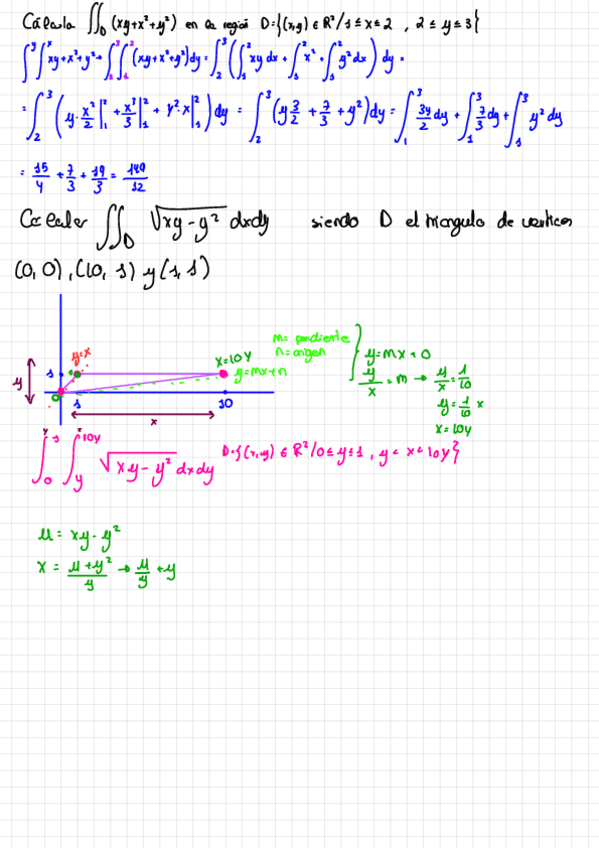 Calcula ∬_D (xy+x²+y²) en la región D={(x,y) ∈ R²/1≤x≤2 , 2≤y≤3}
∫^y ∫^x xy+x²+y² = ∫_2^3 ∫_1^2 (xy+x²+y²)dy = ∫_2^3 (∫_1^2 xy dx + ∫_1^2 x² + ∫_1^2 y²dx) dy =
= ∫_2^3 (y·x²/2|_1^2 + x³/3|_1^2 + y²·x|_1^2) dy = ∫_2^3 (y 3/2 + 7/3 + y²)dy = ∫_1^3 3y/2 dy + ∫_1^3 7/3 dy + ∫_1^3 y² dy
= 15/4 + 7/3 + 19/3 = 149/12
Calcular ∬_D √(xy-y²) dxdy siendo D el triangulo de vertices
(0,0), (10, 1) y (1, 1)
y=x
x=10y
y=mx+n
m= pendiente
n=origen
y=mx+0
y/x = m → y/x = 1/10
y = 1/10 x
x=10y
y
1
0
1
10
x
∫_0^1 ∫_y^10y √(xy-y²) dxdy D={(x,y) ∈ R²/0≤y≤1, y<x<10y}
u = xy-y²
x = (u+y²)/y → u/y + y